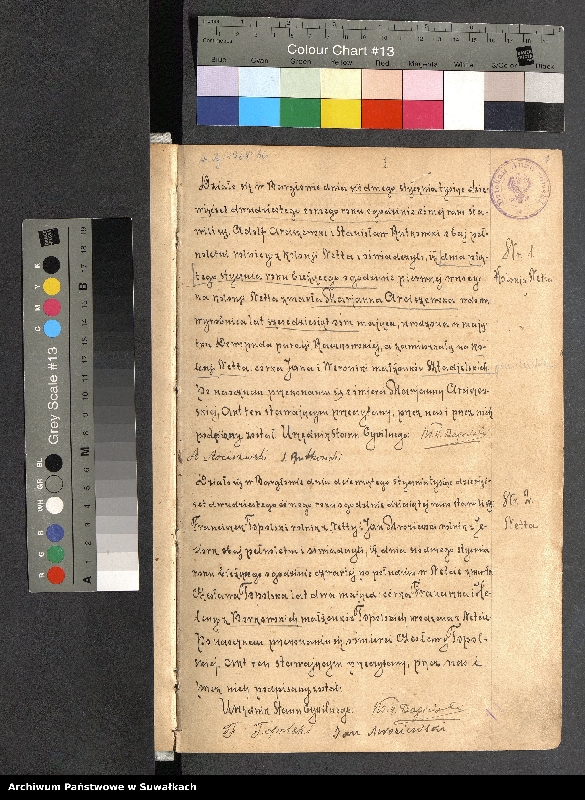 Colour Chart #13
Blue Cyan Green Yellow Red Magenta White 3/Color Black
Grey Scale #13
A M B
R G B WH GR BL C M Y K
1
Działo się w Bargłowie dnia siódmego stycznia tysiąc dzie-
więćset dwudziestego ósmego roku o godzinie ósmej rano sta-
wili się Adolf Arciszewski i Stanisław Rutkowski obaj peł-
noletni rolnicy z kolonji Netta i oświadczyli, iż dnia pią-
tego stycznia roku bieżącego o godzinie pierwszej w nocy
na kolonji Netta zmarła Marjanna Arciszewska wdowa
wyrobnica lat sześćdziesiąt osm mająca, urodzona w mają-
tku parafji Raczkowskiej, a zamieszkała na ko-
lonji Netta, córka Jana i Weroniki małżonków
Po naocznem przekonaniu się o śmierci Marjanny Arciszew-
skiej, Akt ten stawającym przeczytany, przez nas i przez nich
podpisany został. Urzędnik Stanu Cywilnego:
A Arciszewski S Rutkowski
Nr. 1
Kolonja Netta
Działo się w Bargłowie dnia dziewiątego stycznia tysiąc dziewięć-
set dwudziestego ósmego roku o godzinie dziesiątej rano stawili się
Franciszek Topolski rolnik z Netty i Jan rolnik z Je-
ziorek obaj pełnoletni i oświadczyli, iż dnia siódmego stycznia
roku bieżącego o godzinie czwartej po południu w Netcie zmarła
Czesława Topolska lat dwa mająca córka Franciszka i He-
leny z Borkowskich małżonków Topolskich urodzona w Netcie
Po naocznem przekonaniu się o śmierci Czesławy Topol-
skiej, Akt ten stawającym przeczytany, przez nas i
przez nich podpisany został.
Urzędnik Stanu Cywilnego:
Fr Topolski Jan
Nr. 2.
Netta
Archiwum Państwowe w Suwałkach